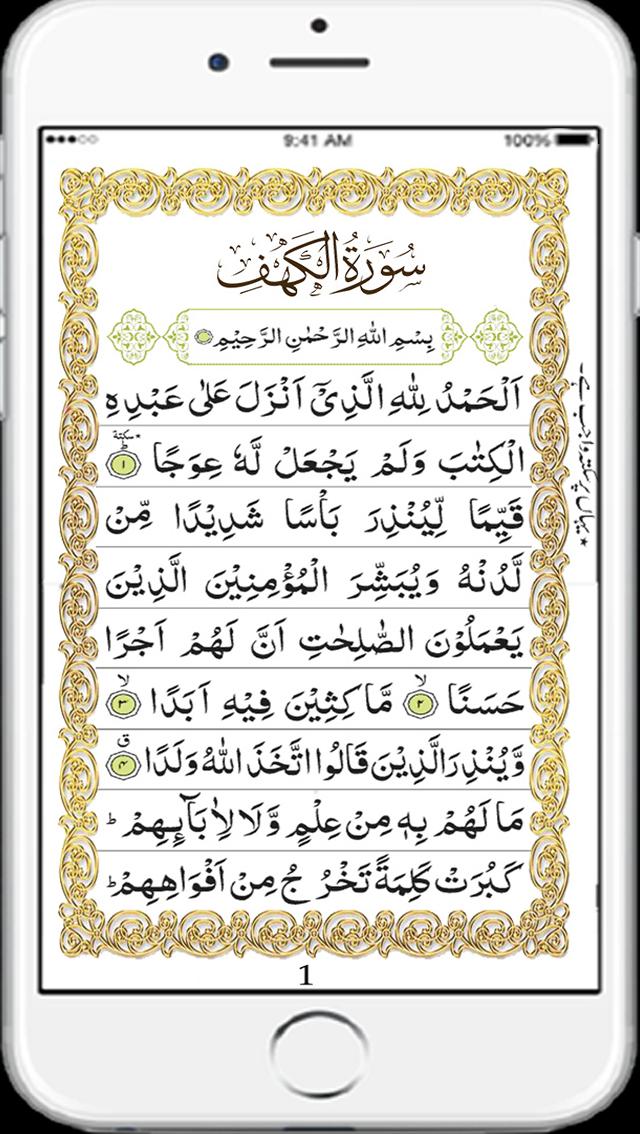 9:41 AM 100%
سُورَةُ الْكَهْفِ
بِسْمِ اللّٰهِ الرَّحْمٰنِ الرَّحِيْمِ
اَلْحَمْدُ لِلّٰهِ الَّذِيْٓ اَنْزَلَ عَلٰى عَبْدِهِ
الْكِتٰبَ وَلَمْ يَجْعَلْ لَّهٗ عِوَجًا ۜ سكتة ١
قَيِّمًا لِّيُنْذِرَ بَاْسًا شَدِيْدًا مِّنْ
لَّدُنْهُ وَيُبَشِّرَ الْمُؤْمِنِيْنَ الَّذِيْنَ
يَعْمَلُوْنَ الصّٰلِحٰتِ اَنَّ لَهُمْ اَجْرًا
حَسَنًا ۙ ٢ مَّاكِثِيْنَ فِيْهِ اَبَدًا ۙ ٣
وَّيُنْذِرَ الَّذِيْنَ قَالُوا اتَّخَذَ اللّٰهُ وَلَدًا ق ٤
مَا لَهُمْ بِهٖ مِنْ عِلْمٍ وَّلَا لِاٰبَآئِهِمْ ؕ
كَبُرَتْ كَلِمَةً تَخْرُجُ مِنْ اَفْوَاهِهِمْ ؕ
* یہاں پر سکتہ واجب ہے۔
1